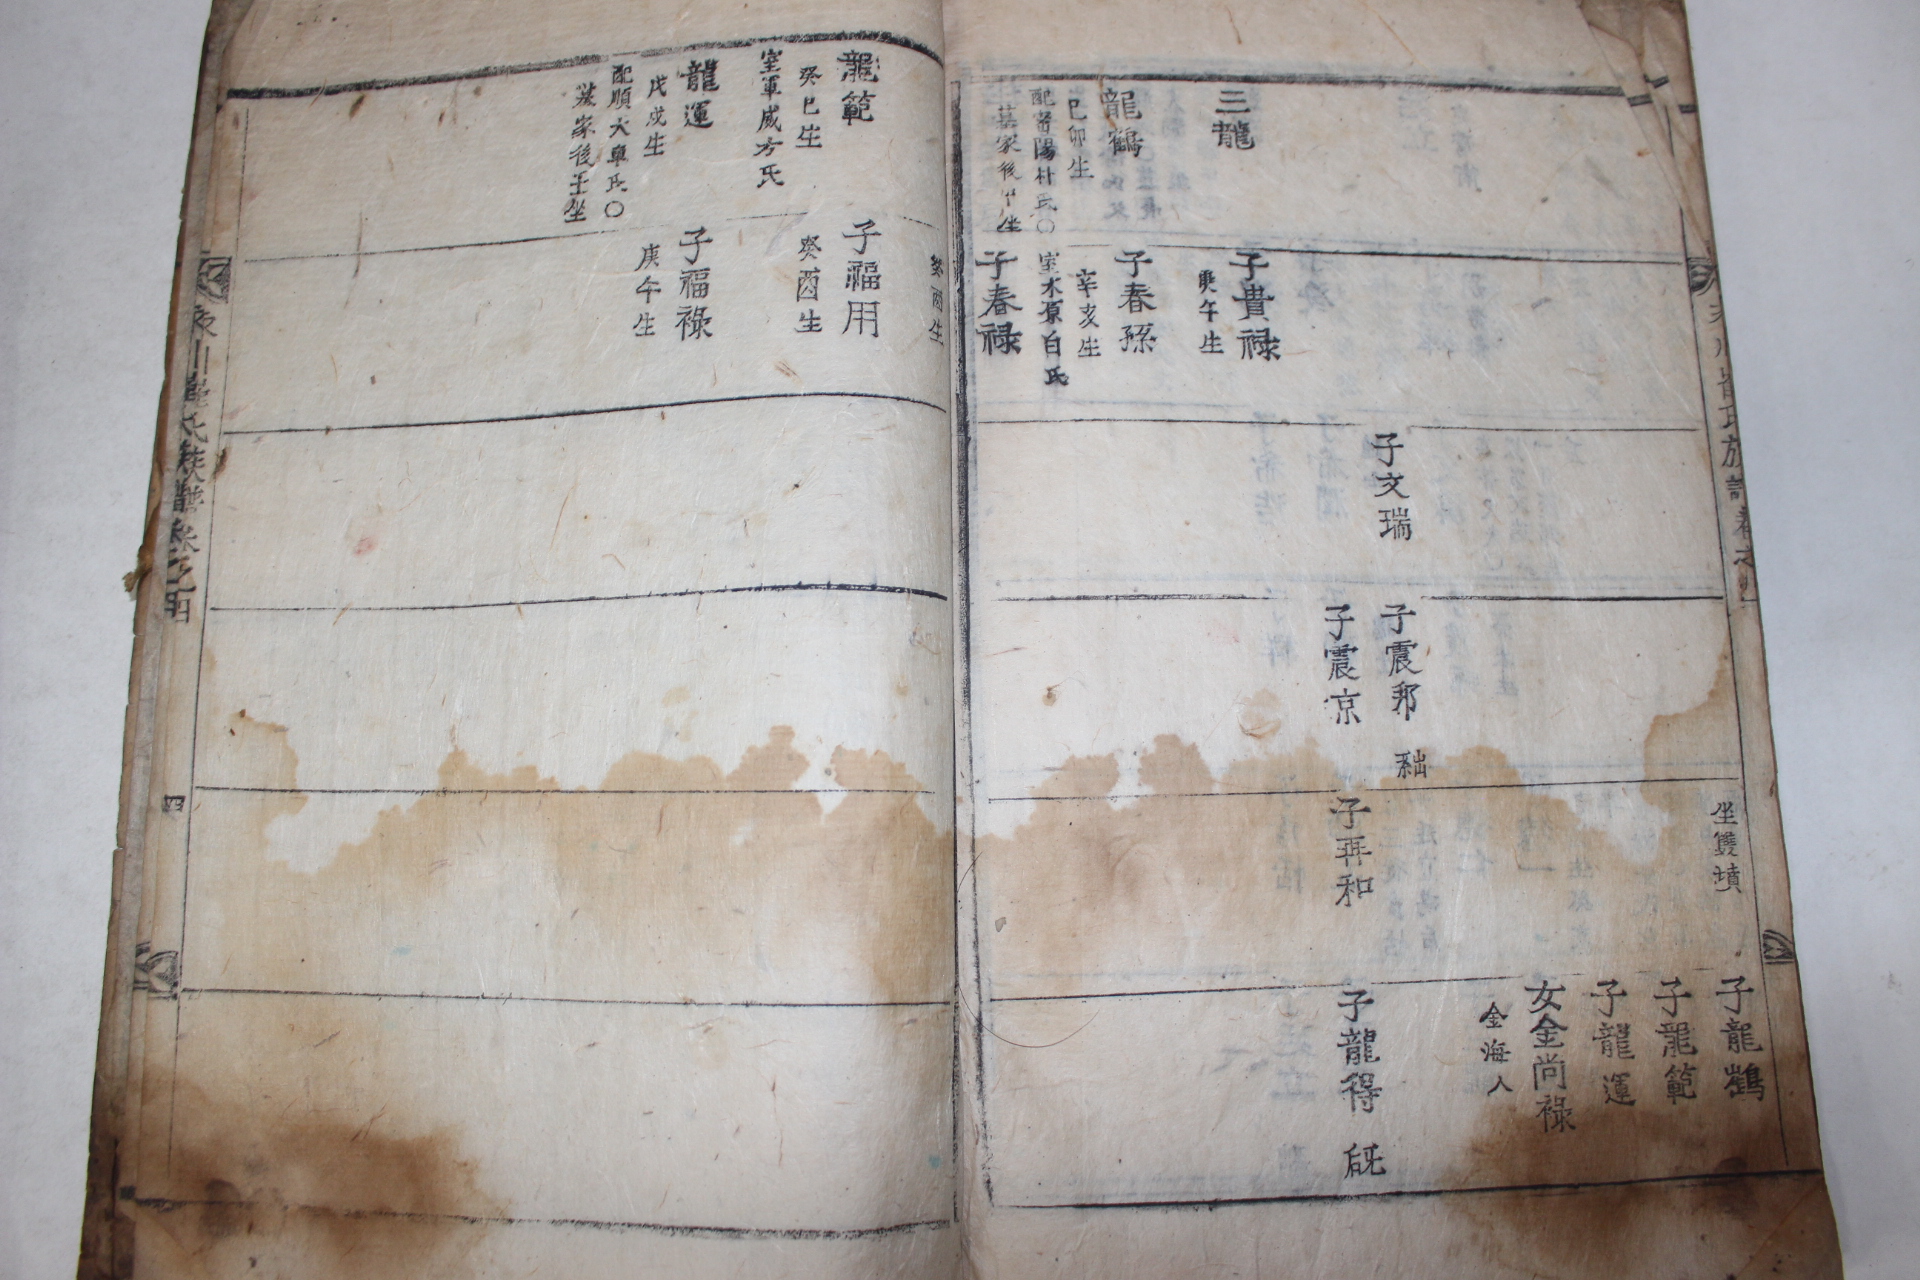 坐雙墳
子龍鶴
子龍範
子龍運
女金尚祿
金海人
子文瑞
子震邦
系出
子震京
子再和
子龍得
三龍
子貴祿
庚午生
龍鶴
己卯生
配密陽朴氏○
墓家後甲坐
子春孫
辛亥生
室水原白氏
子春祿
癸酉生
龍範
癸巳生
室軍威方氏
子福用
癸酉生
龍運
戊戌生
配順天車氏○
墓家後壬坐
子福祿
庚午生
氏族譜卷之四
四